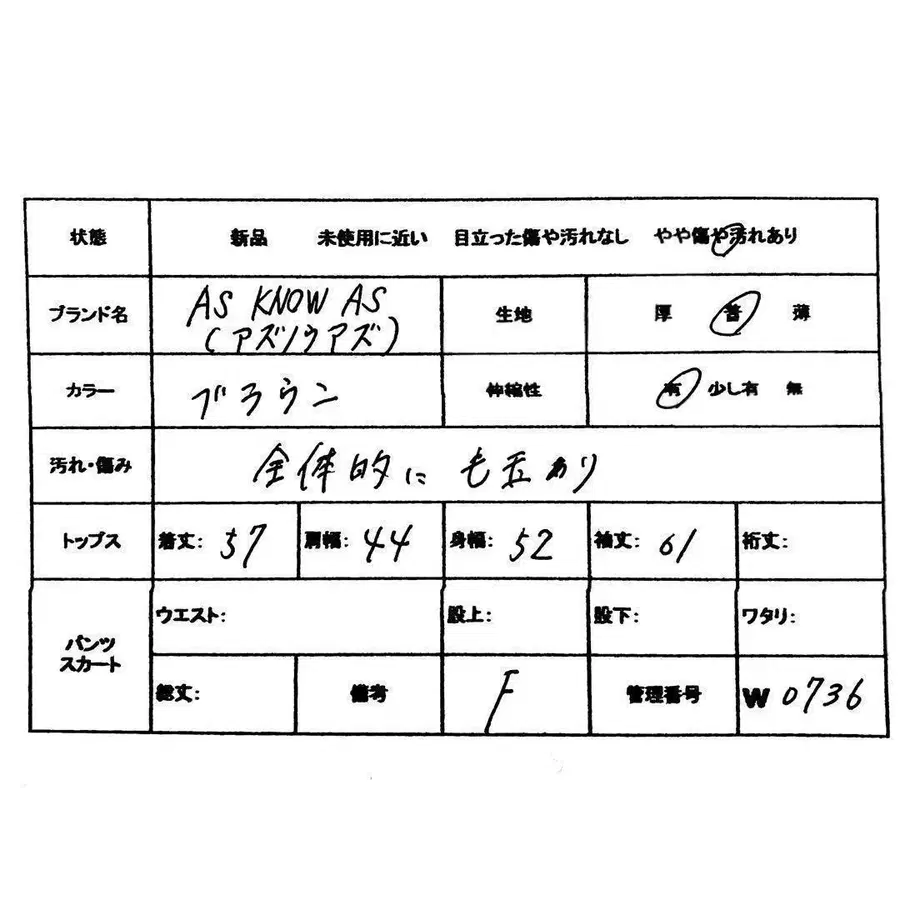 状態 新品 未使用に近い 目立った傷や汚れなし やや傷や汚れあり
ブランド名 AS KNOW AS 生地 厚 普 薄
(アズノウアズ)
カラー ブラウン 伸縮性 有 少し有 無
汚れ・傷み 全体的に 毛玉あり
トップス 着丈: 57 肩幅: 44 身幅: 52 袖丈: 61 裄丈:
パンツ ウエスト: 股上: 股下: ワタリ:
スカート
総丈: 備考 F 管理番号 W 0736